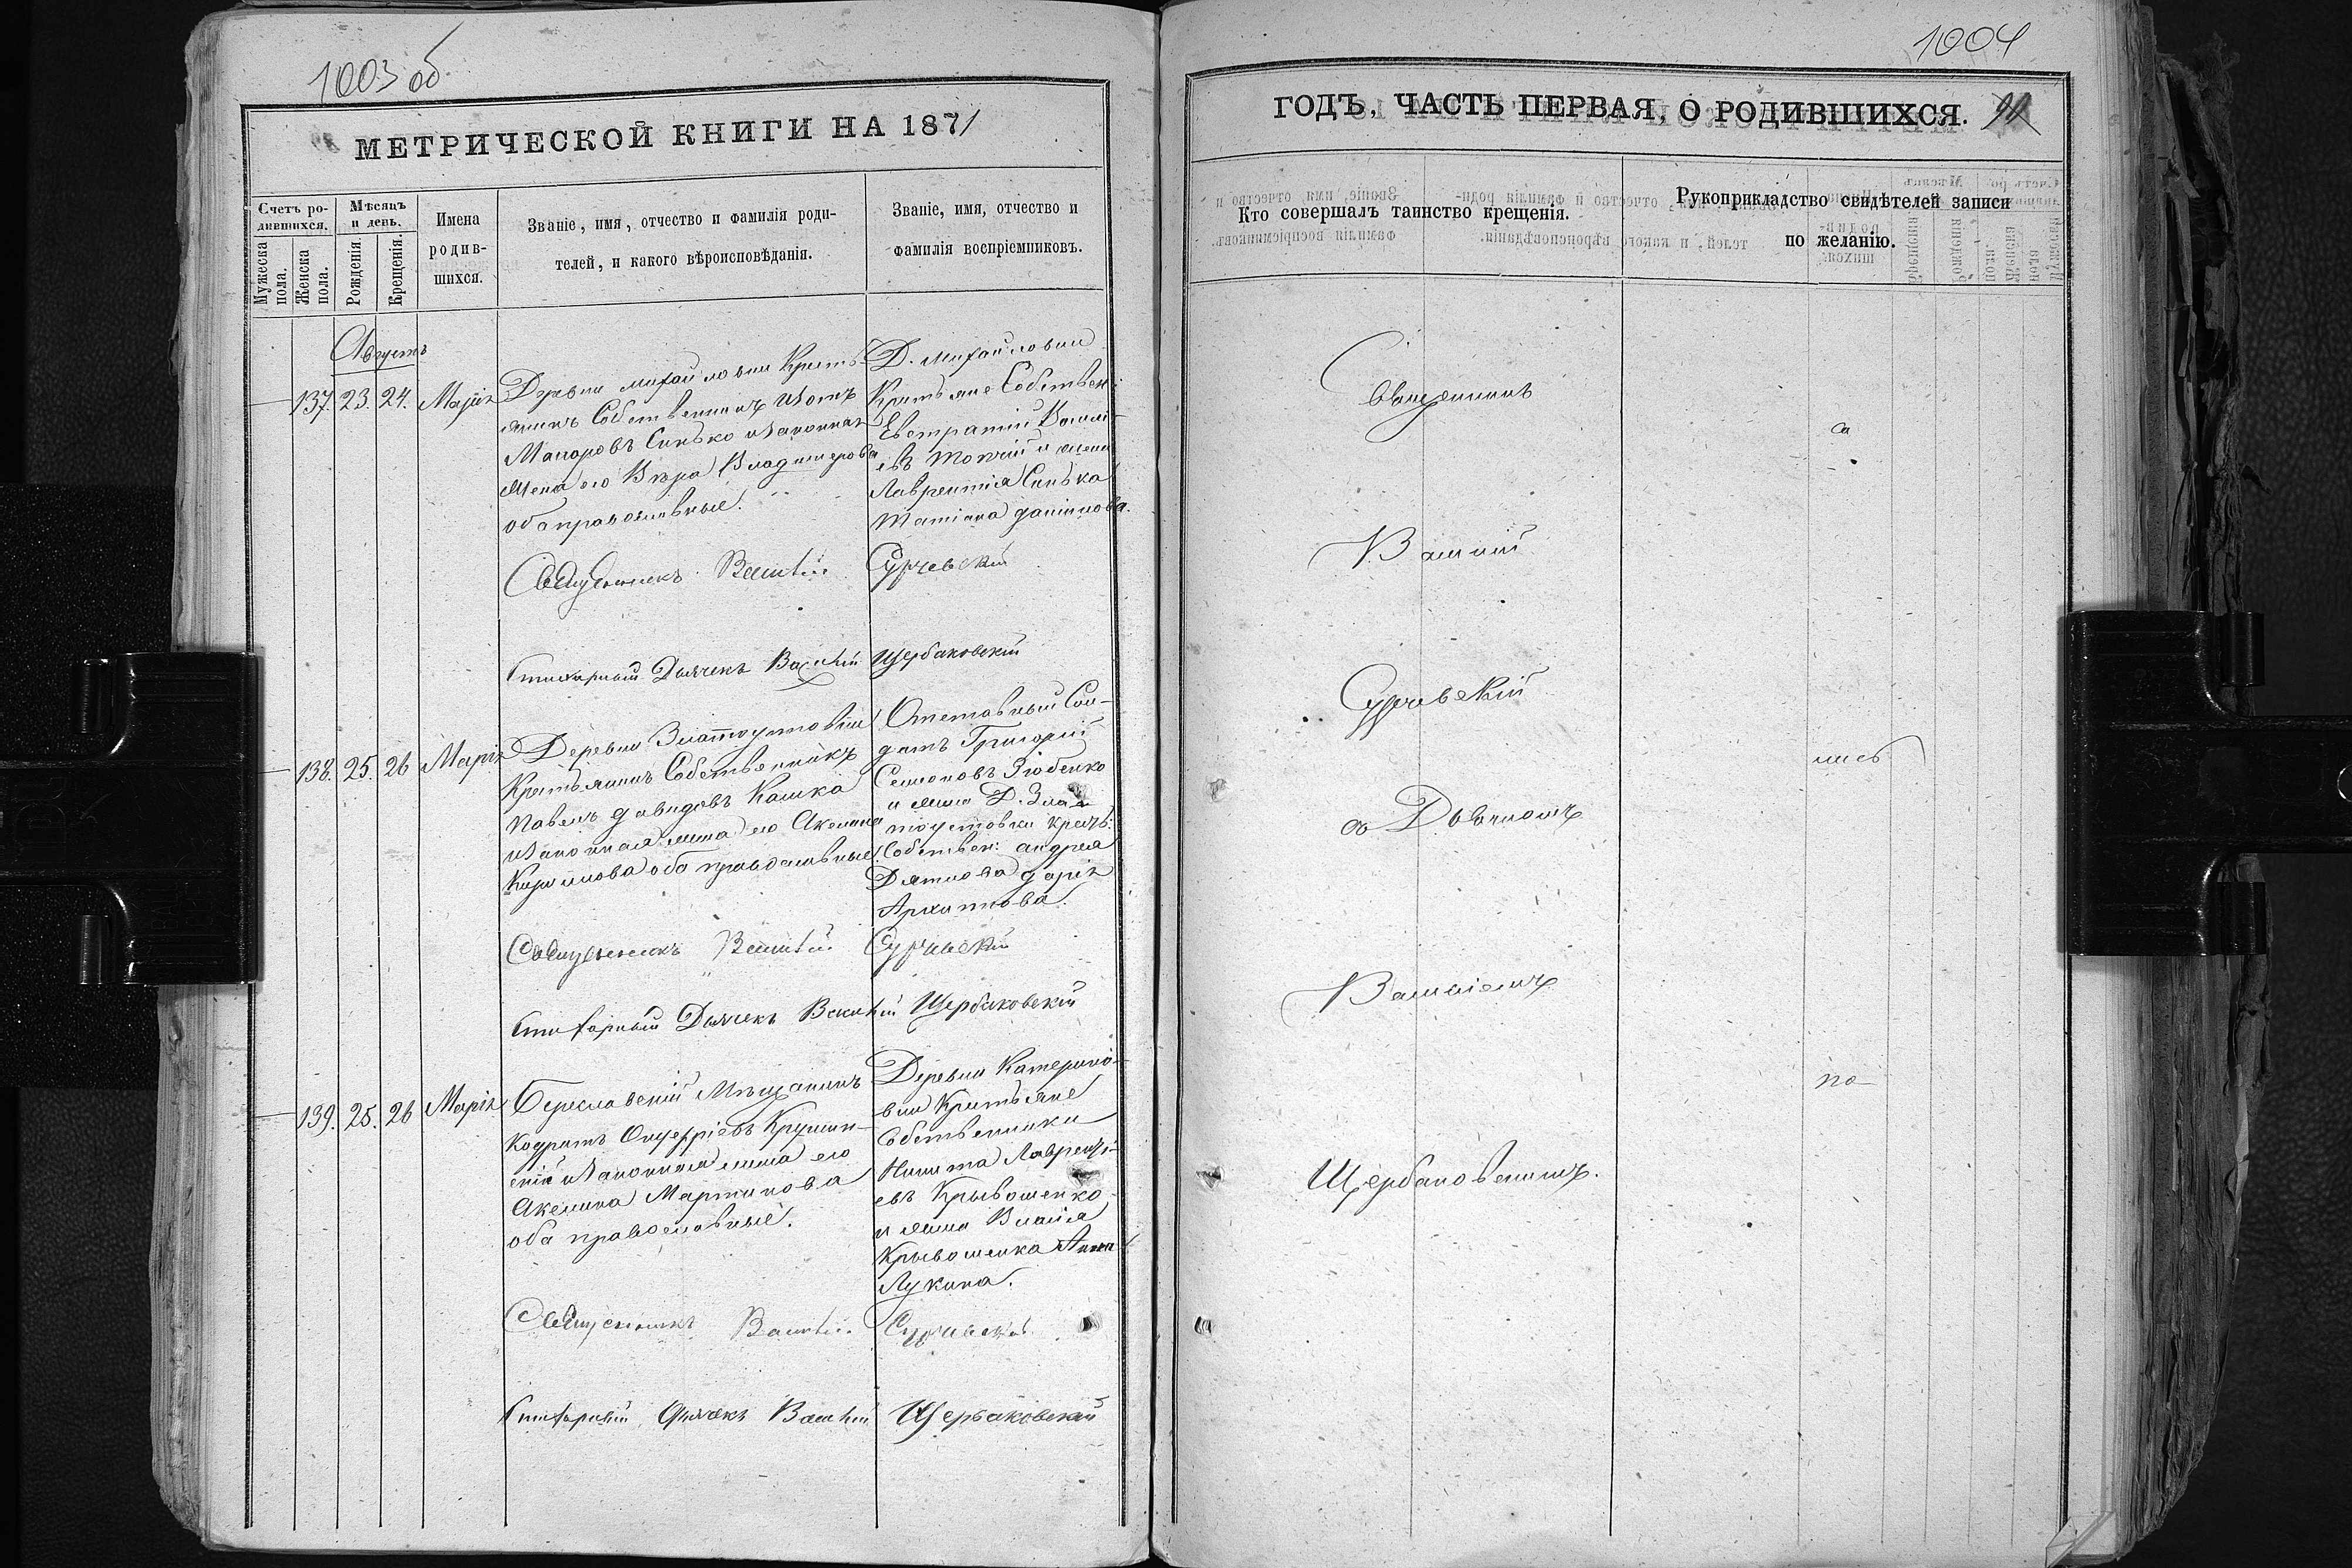 1003 об
МЕТРИЧЕСКОЙ КНИГИ НА 1871
Счетъ ро-
дившихся.
Мужеска
пола.
Женска
пола.
Мѣсяцъ
и день.
Рожденія.
Крещенія.
Имена
родив-
шихся.
Званіе, имя, отчество и фамилія роди-
телей, и какого вѣроисповѣданія.
Званіе, имя, отчество и
фамилія воспріемниковъ.
Августъ
137. 23. 24. Марія
Деревни Михайловки Кресть-
янинъ Собственникъ
Макаровъ Синько и Законная
Жена его Вѣра Владимерова
оба православные.
Д. Михайловки
Крестьяне Собствен:
Евстратій Васил-
евъ и жена
Лаврентія Синька
Татіана данилова.
Священникъ Василій Сурчевскій
Стихарный Дьячекъ Василій Щербаковскій
138. 25. 26 Марія
Деревни Златоустовки
Крестьянинъ Собственникъ
Павелъ давидовъ Кашка
и Законная жена его Акелина
Кирилова оба православные.
Отставный Сол-
датъ Григорій
Семеновъ Зюбенко
и жена Д. Зла-
тоустовки крест:
Собствен: андрея
Дятлова дарія
Архипова.
Священникъ Василій Сурчевскій
Стихарный Дьячекъ Василій Щербаковскій
139. 25. 26 Марія
Бериславскій Мѣщанинъ
Кодратъ Онуфріевъ
и Законная жена его
Акелина Мартинова
оба православные.
Деревни Катерино-
вки Крестьяне
Собственники
Никита Лавренті-
евъ Крывошенко
и жена Власія
Крывошенка Анна
Лукина.
Священникъ Василій Сурчевскій
Стихарный Дьячекъ Василій Щербаковскій
1004
ГОДЪ, ЧАСТЬ ПЕРВАЯ, О РОДИВШИХСЯ.
Кто совершалъ таинство крещенія.
Рукоприкладство свидѣтелей записи
по желанію.
Священникъ
Василій
Сурчевскій
съ Дьячкомъ
Василіемъ
Щербаковскимъ.